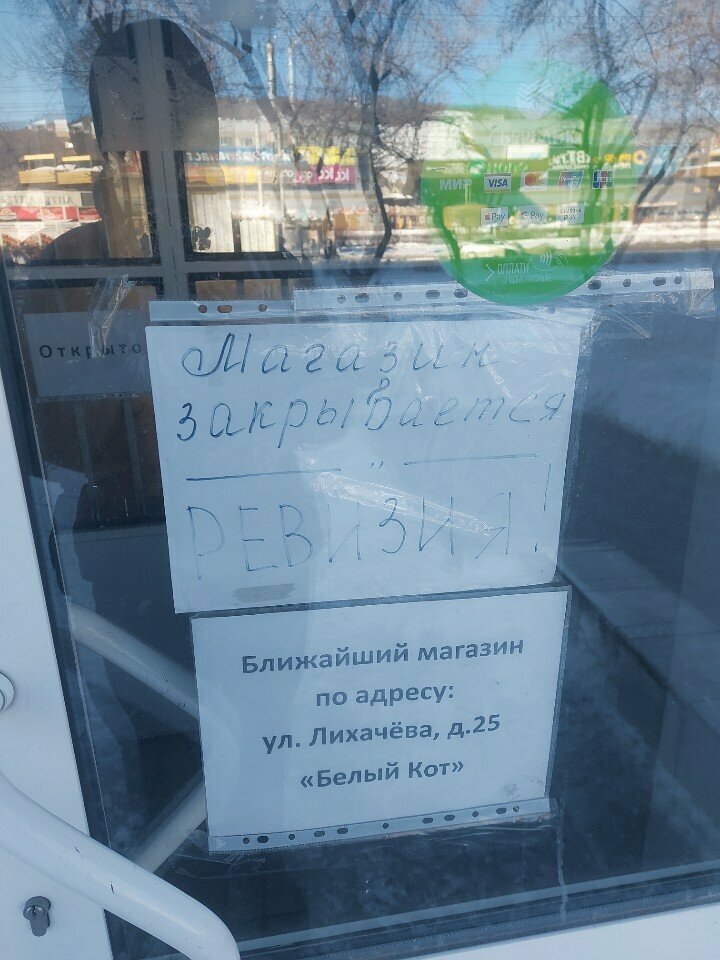 МИР VISA
Pay G Pay
ОПЛАТИТЬ
Открыто
Магазин
закрывается
— " —
РЕВИЗИЯ!
Ближайший магазин
по адресу:
ул. Лихачёва, д.25
«Белый Кот»